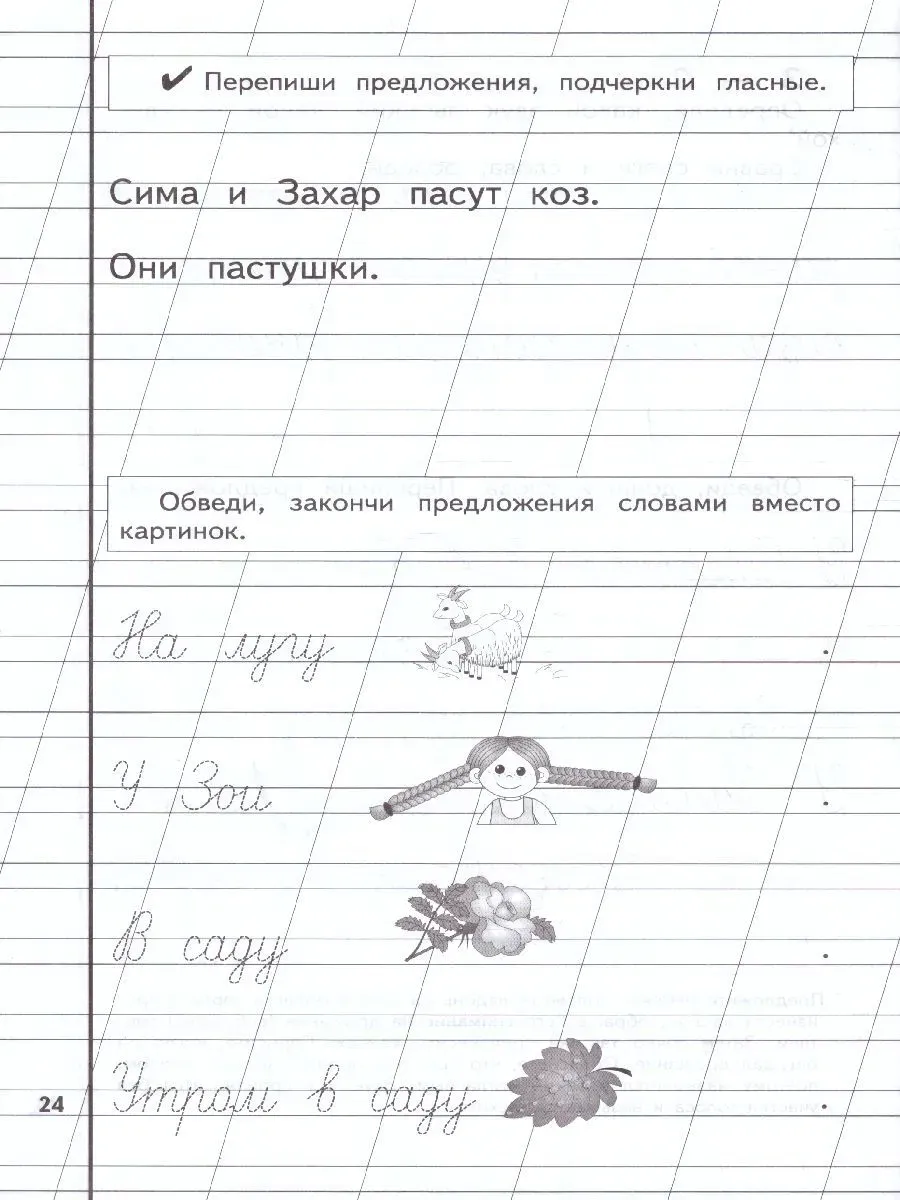 ✔ Перепиши предложения, подчеркни гласные.
Сима и Захар пасут коз.
Они пастушки.
Обведи, закончи предложения словами вместо
картинок.
На лугу .
У Зои .
В саду .
Утром в саду .
24